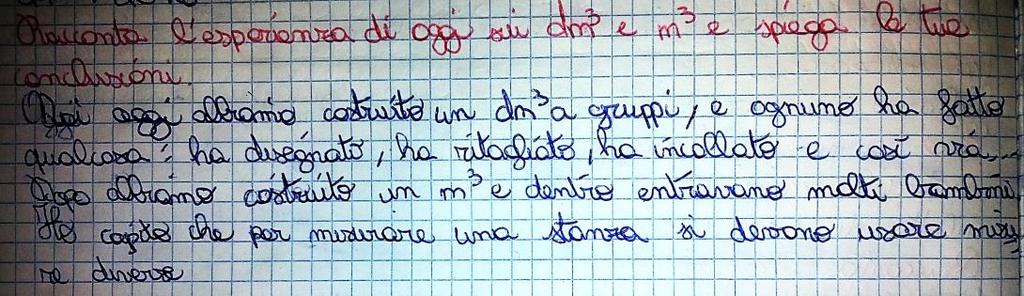 Racconta l'esperienza di oggi sui dm³ e m³ e spiega le tue
conclusioni.
Noi oggi abbiamo costruito un dm³ a gruppi, e ognuno ha fatto
qualcosa: ha disegnato, ha ritagliato, ha incollato e così via...
Dopo abbiamo costruito un m³ e dentro entravano molti bambini.
Ho capito che per misurare una stanza si devono usare misu
re diverse